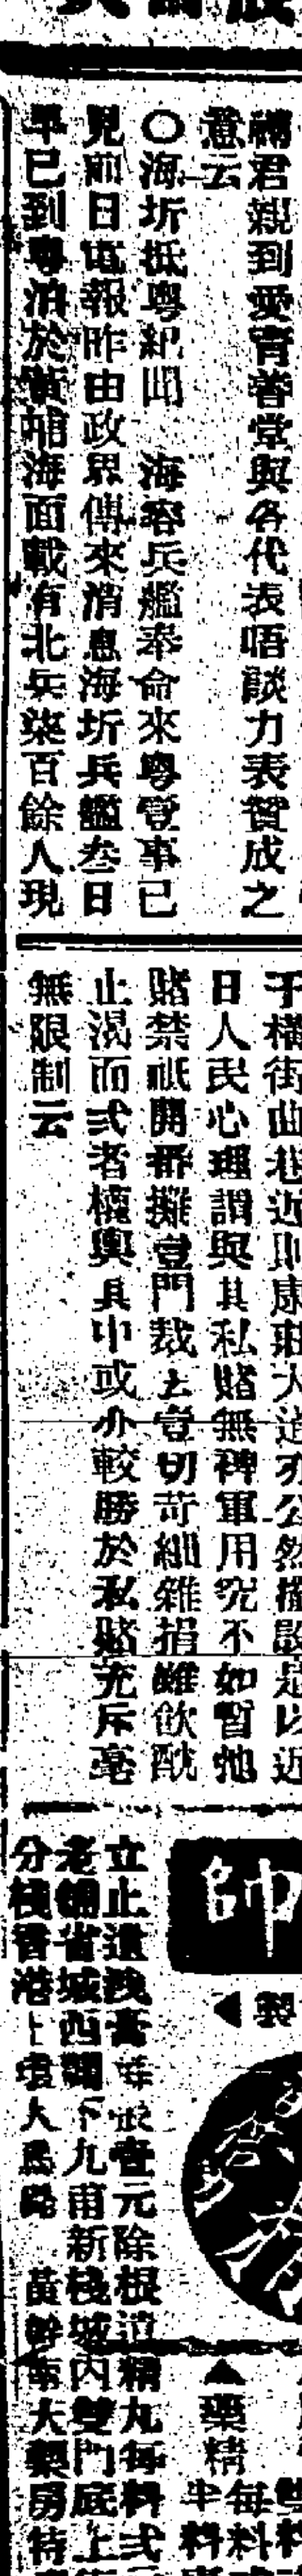 禰君親到愛育善堂與各代表唔談力表贊成之
意云
○海圻抵粵紀聞　海容兵艦奉命來粵壹事已
見前日電報昨由政界傳來消息海圻兵艦叁日
早已到粵泊於黃埔海面載有北兵柒百餘人現
于橫街曲巷近則康莊大道亦公然擺設是以近
日人民心理謂與其私賭無裨軍用究不如暫弛
賭禁祇開番攤壹門裁去壹切苛細雜捐雖飲酖
止渴而弍者權輿其中或亦較勝於私賭充斥毫
無限制云
帥
製
藥精
每料
半料
立止遺洩
壹元除根
精丸每料弍
老舖省城西關下九甫新棧城內雙門底上
分棧香港上環大馬路　黃幹南大藥房